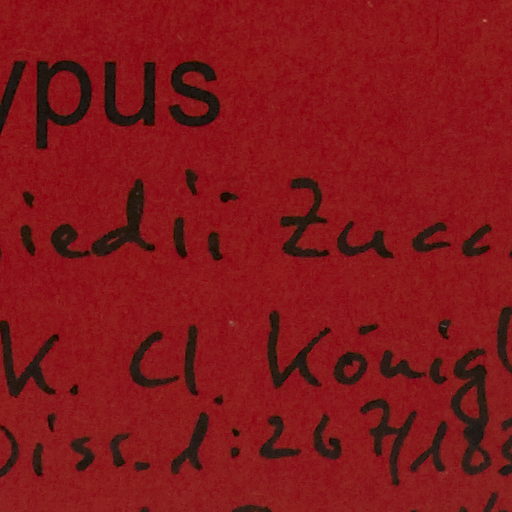 ypus
iedii Zucc.
K. Cl. Königl
Diss. 1:267/183